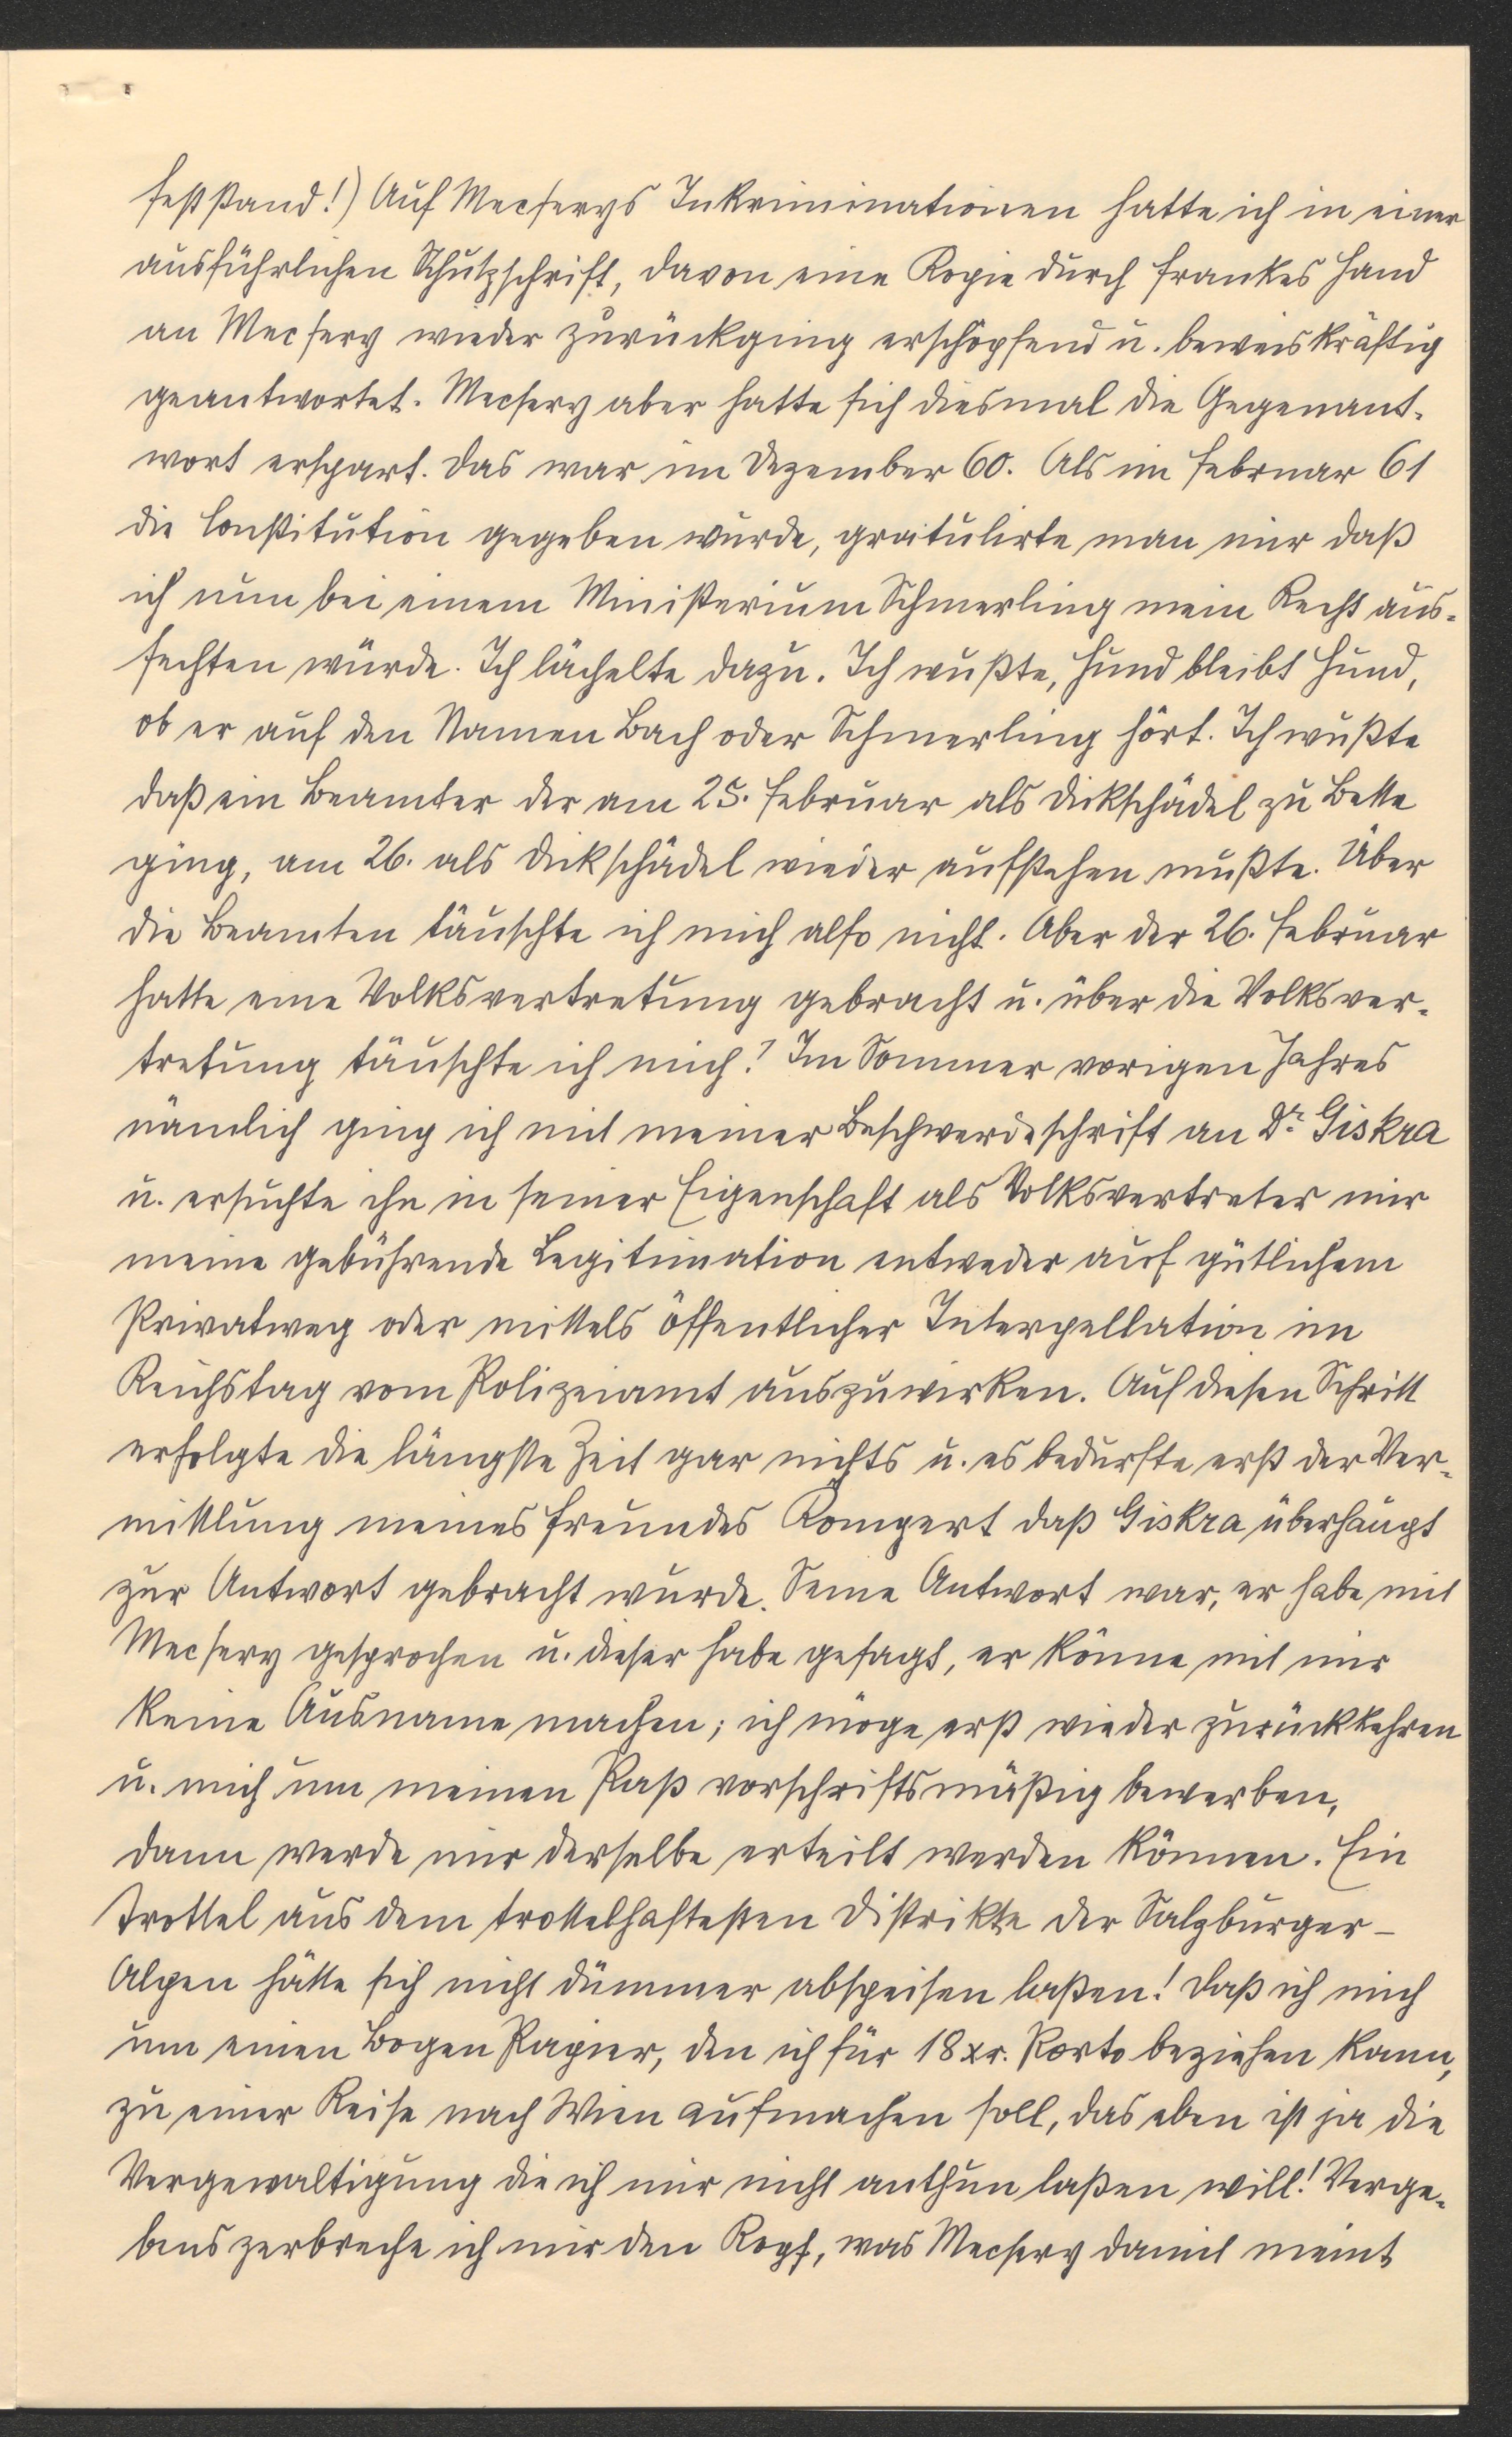 feststand!) Auf Mecserys Inkriminationen hatte ich in einer
ausführlichen Schutzschrift, davon eine Kopie durch Frankes Hand
an Mecsery wieder zurückging erschöpfend u. beweiskräftig
geantwortet. Mecsery aber hatte sich diesmal die Gegenant-
wort erspart. Das war im Dezember 60. Als im Februar 61
die Constitution gegeben wurde, gratulirte man mir daß
ich nun bei einem Ministerium Schmerling mein Recht aus-
fechten würde. Ich lächelte dazu. Ich wußte, Hund bleibt Hund,
ob er auf den Namen Bach oder Schmerling hört. Ich wußte
daß ein Beamter der am 25. Februar als Dickschädel zu Bette
ging, am 26. als Dickschädel wieder aufstehen mußte. Über
die Beamten täuschte ich mich also nicht. Aber der 26. Februar
hatte eine Volksvertretung gebracht u. über die Volksver-
tretung täuschte ich mich! Im Sommer vorigen Jahres
nämlich ging ich mit meiner Beschwerdeschrift an Dr. Giskra
u. ersuchte ihn in seiner Eigenschaft als Volksvertreter mir
meine gebührende Legitimation entweder auf gütlichem
Privatweg oder mittels öffentlicher Interpellation im
Reichstag vom Polizeiamt auszuwirken. Auf diesen Schritt
erfolgte die längste Zeit gar nichts u. es bedurfte erst der Ver-
mittlung meines Freundes Kompert daß Giskra überhaupt
zur Antwort gebracht wurde. Seine Antwort war, er habe mit
Mecsery gesprochen u. dieser habe gesagt, er könne mit mir
keine Ausname machen; ich möge erst wieder zurückkehren
u. mich um meinen Paß vorschriftsmäßig bewerben,
dann werde mir derselbe erteilt werden können. Ein
Trottel aus dem trottelhaftesten Distrikte der Salzburger-
Alpen hätte sich nicht dümmer abspeisen laßen! Daß ich mich
um einen Bogen Papier, den ich für 18 xr. Porto beziehen kann,
zu einer Reise nach Wien aufmachen soll, das eben ist ja die
Vergewaltigung die ich mir nicht anthun laßen will! Verge-
bens zerbreche ich mir den Kopf, was Mecsery damit meint